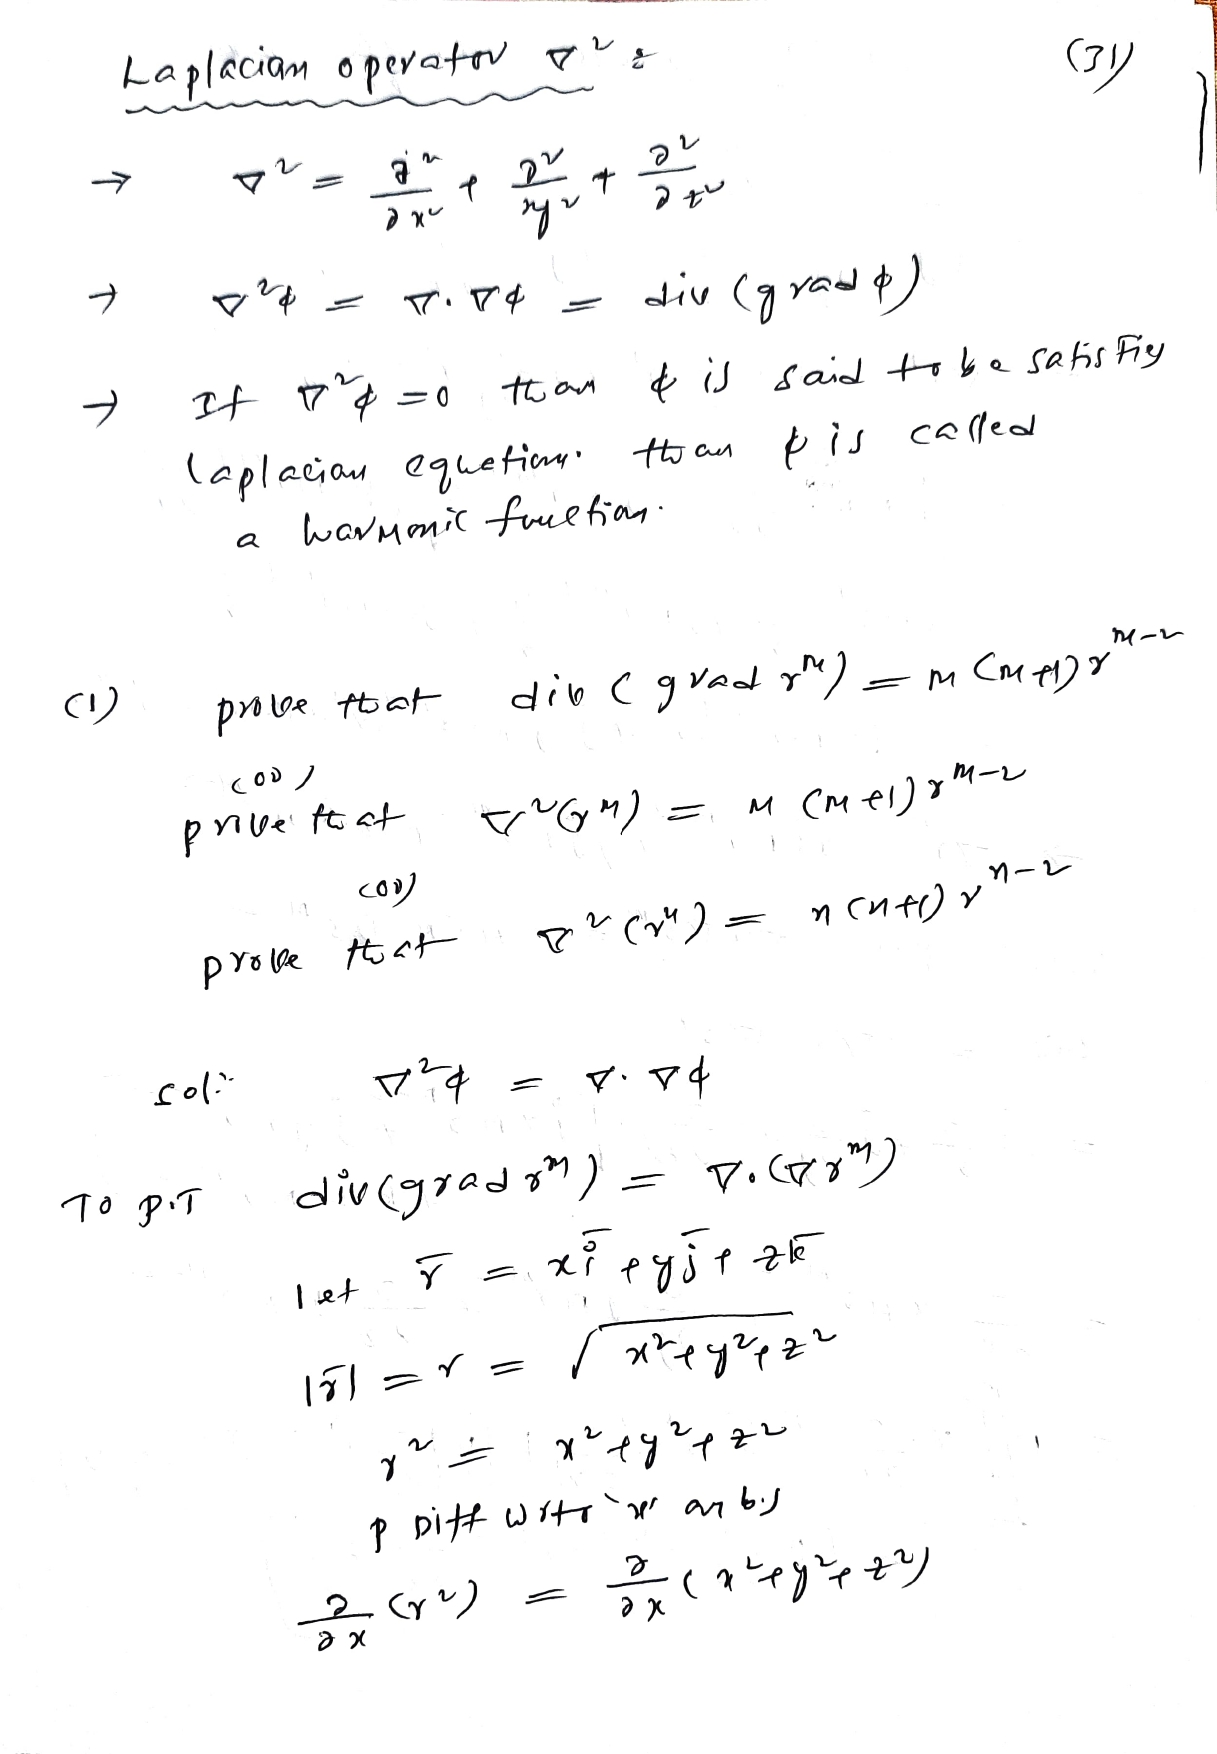 Laplacian operator ∇² :
(31)
→ ∇² = ∂²/∂x² + ∂²/∂y² + ∂²/∂z²
→ ∇²ϕ = ∇.∇ϕ = div (grad ϕ)
→ If ∇²ϕ = 0 than ϕ is said to be satisfiy
laplacian equetion. than ϕ is called
a harmonic function.
(1) prove that div (grad rᵐ) = m (m+1) rᵐ⁻²
(or)
prove that ∇²(rᵐ) = m (m+1) rᵐ⁻²
(or)
prove that ∇²(rⁿ) = n (n+1) rⁿ⁻²
Sol:- ∇²ϕ = ∇.∇ϕ
To P.T div(grad rᵐ) = ∇.(∇rᵐ)
let r̄ = xī + yj̄ + zk̄
|r̄| = r = √(x²+y²+z²)
r² = x²+y²+z²
P Diff w.r.to 'x' on b.s
∂/∂x (r²) = ∂/∂x (x²+y²+z²)